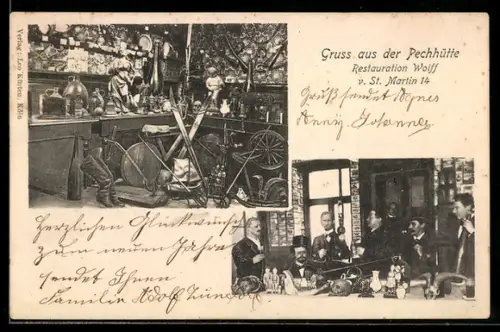 Verlag: Leo Kürten, Köln
Gruss aus der Pechhütte
Restauration Wolff
v. St. Martin 14
Gruß sendet Agnes
Herzlichen Glückwunsch
zum neuen Jahre
sendet Ihnen
Familie Adolf